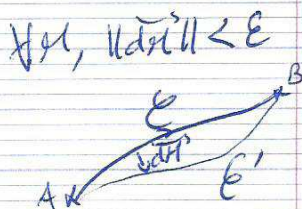 ∀M, ||d⃗M|| < ε
B
C
d⃗M
C'
A